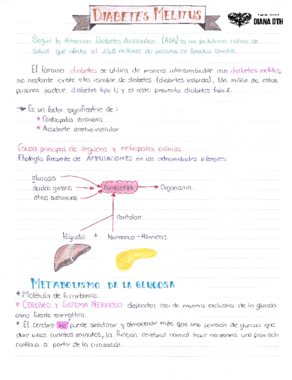 DIABETES MELITUS
DIANA DTH
Según la American Diabetes Association (ADA) es un problema crítico de
salud que afecta al 25,8 millones de personas en Estados Unidos.
El término diabetes se utiliza de manera intercambiable con diabetes mellitus,
no obstante existe otro nombre de diabetes (diabetes insípida). Un millón de estas
personas padecen diabetes tipo 1, y el resto presenta diabetes tipo 2.
Es un factor significativo de:
* Cardiopatía coronaria
* Accidente cerebrovascular
Causa principal de ceguera y nefropatía crónica.
Etiología frecuente de AMPUTACIONES en las extremidades inferiores.
glucosa
ácidos grasos
otros sustratos
Combustible
Organismo.
controlan
Hígado + Hormonas-Páncreas
METABOLISMO DE LA GLUCOSA
* Molécula de 6 carbonos.
* CEREBRO y SISTEMA NERVIOSO dependen casi de manera exclusiva de la glucosa
como fuente energética.
* El cerebro no puede sintetizar y almacenar más que una provisión de glucosa que
dure unos cuantos minutos, la función cerebral normal hace necesaria una provisión
continua a partir de la circulación.